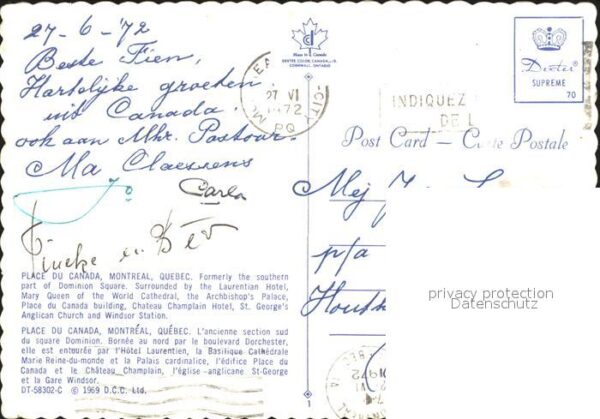 27-6-'72
Beste Fien,
Hartelijke groeten
uit Canada,
ook aan Mhr. Pastoor.
Ma Claessens
Jo
Carla
Tineke en Bev
PLACE DU CANADA, MONTREAL, QUEBEC. Formerly the southern
part of Dominion Square. Surrounded by the Laurentian Hotel,
Mary Queen of the World Cathedral, the Archbishop's Palace,
Place du Canada building, Chateau Champlain Hotel, St. George's
Anglican Church and Windsor Station.
PLACE DU CANADA, MONTRÉAL, QUÉBEC. L'ancienne section sud
du square Dominion. Bornée au nord par le boulevard Dorchester,
elle est entourée par l'Hôtel Laurentien, la Basilique Cathédrale
Marie Reine-du-monde et la Palais cardinalice, l'édifice Place du
Canada et le Château Champlain, l'église anglicane St-George
et la Gare Windsor.
DT-58302-C © 1969 D.C.D. Ltd.
Made in Canada
DEXTER COLOR CANADA LTD.
CORNWALL, ONTARIO
27 VI
1972
PQ
INDIQUEZ
DE L
Dexter®
SUPREME
70
Post Card — Carte Postale
Mej
p/a
privacy protection
Datenschutz
1972
1